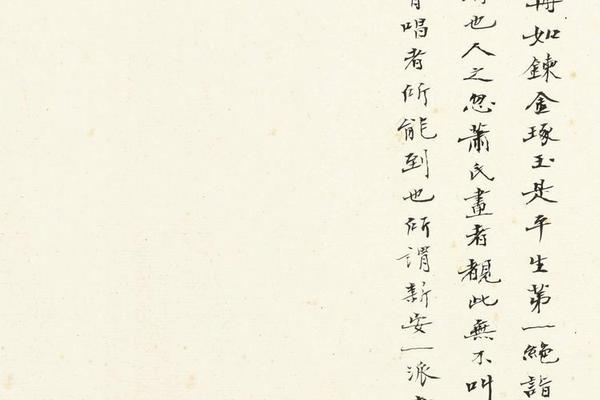 如鍊金琢玉是平生第一絶詣
也久之忽蕭氏畫者覩此無不叫
唱者所能到也所謂新安一派